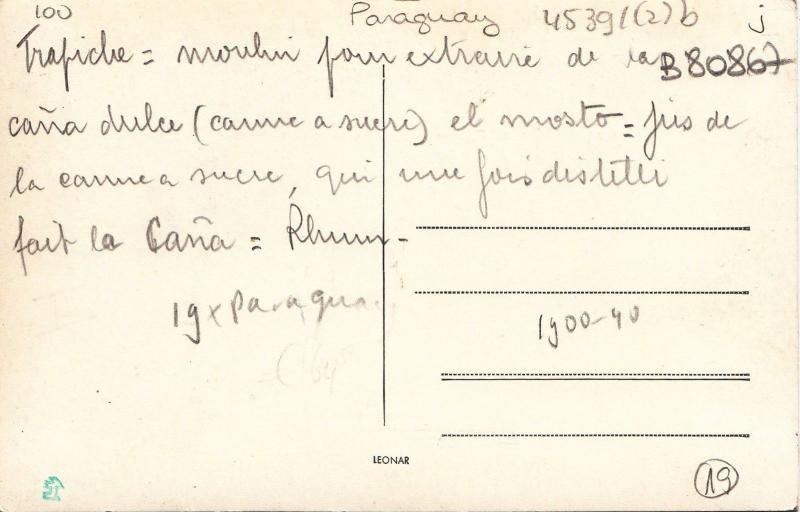 100 Paraguay 45391(2)b j
Trapiche = moulin pour extraire de la B80867
caña dulce (canne a sucre) el mosto = jus de
la canne a sucre, qui une fois distilli
fait la Caña = Rhum -
19x Paragua
1900-40
LEONAR
19